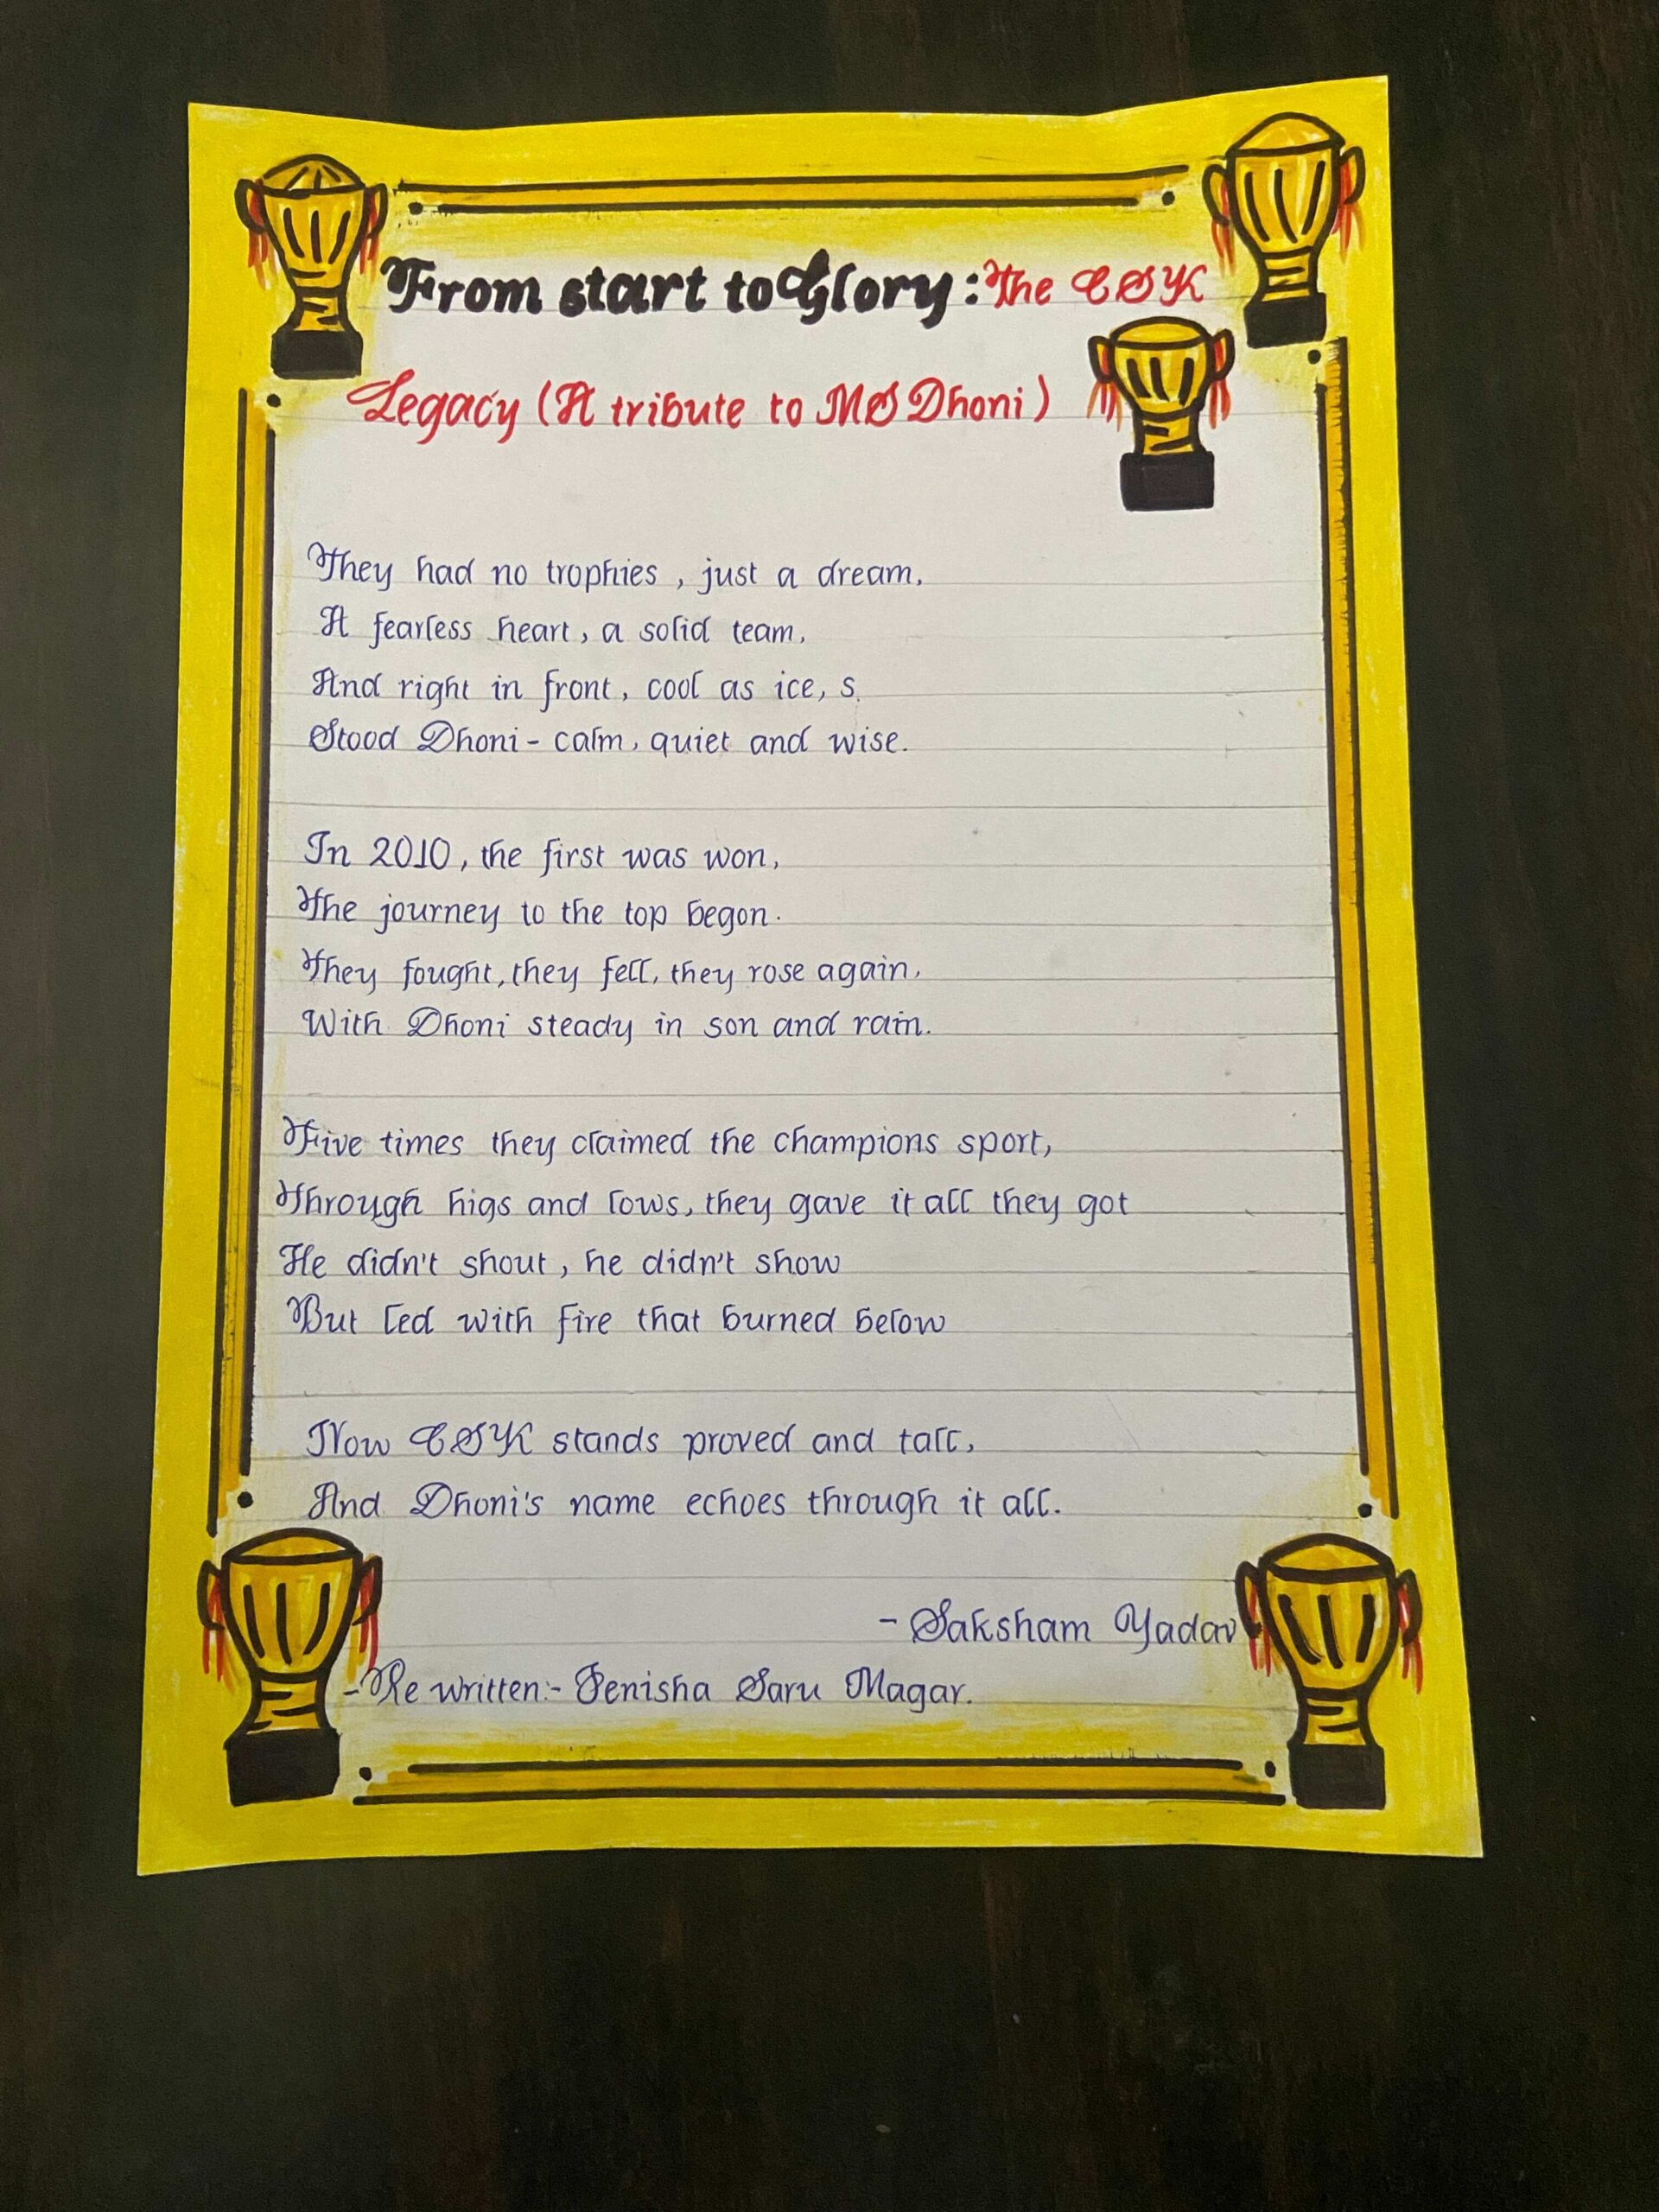 From start to Glory : The CSK
Legacy (A tribute to MS Dhoni)
They had no trophies , just a dream,
A fearless heart, a solid team,
And right in front, cool as ice, s.
Stood Dhoni - calm, quiet and wise.
In 2010, the first was won,
The journey to the top begon.
They fought, they fell, they rose again,
With Dhoni steady in son and rain.
Five times they claimed the champions sport,
Through higs and lows, they gave it all they got
He didn't shout, he didn't show
But led with fire that burned below
Now CSK stands proved and tall,
And Dhoni's name echoes through it all.
- Saksham Yadav
- Re written:- Jenisha Saru Magar.